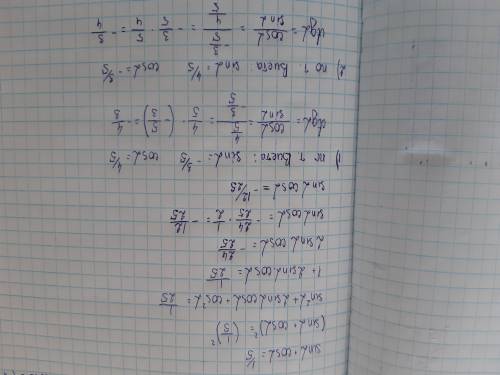 sinα + cosα = 1/5
(sinα + cosα)² = (1/5)²
sin²α + 2sinα cosα + cos²α = 1/25
1 + 2sinα cosα = 1/25
2 sinα cosα = -24/25
sinα cosα = -24/25 · 1/2 = -12/25
sinα cosα = -12/25
1) по т Виета: sinα = -3/5 cosα = 4/5
ctgα = cosα/sinα = 4/5 / -3/5 = 4/5 · (-5/3) = -4/3
2) по т Виета: sinα = 4/5 cosα = -3/5
ctgα = cosα/sinα = -3/5 / 4/5 = -3/5 · 5/4 = -3/4